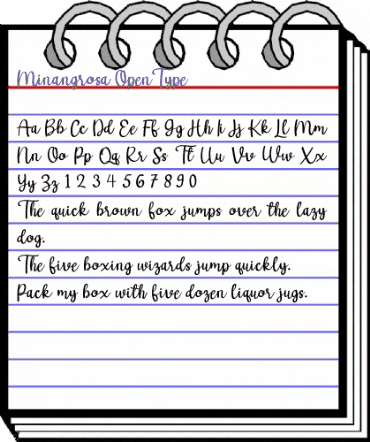 Minangrosa OpenType
Aa Bb Cc Dd Ee Ff Gg Hh Ii Jj Kk Ll Mm
Nn Oo Pp Qq Rr Ss Tt Uu Vv Ww Xx
Yy Zz 1 2 3 4 5 6 7 8 9 0
The quick brown fox jumps over the lazy
dog.
The five boxing wizards jump quickly.
Pack my box with five dozen liquor jugs.